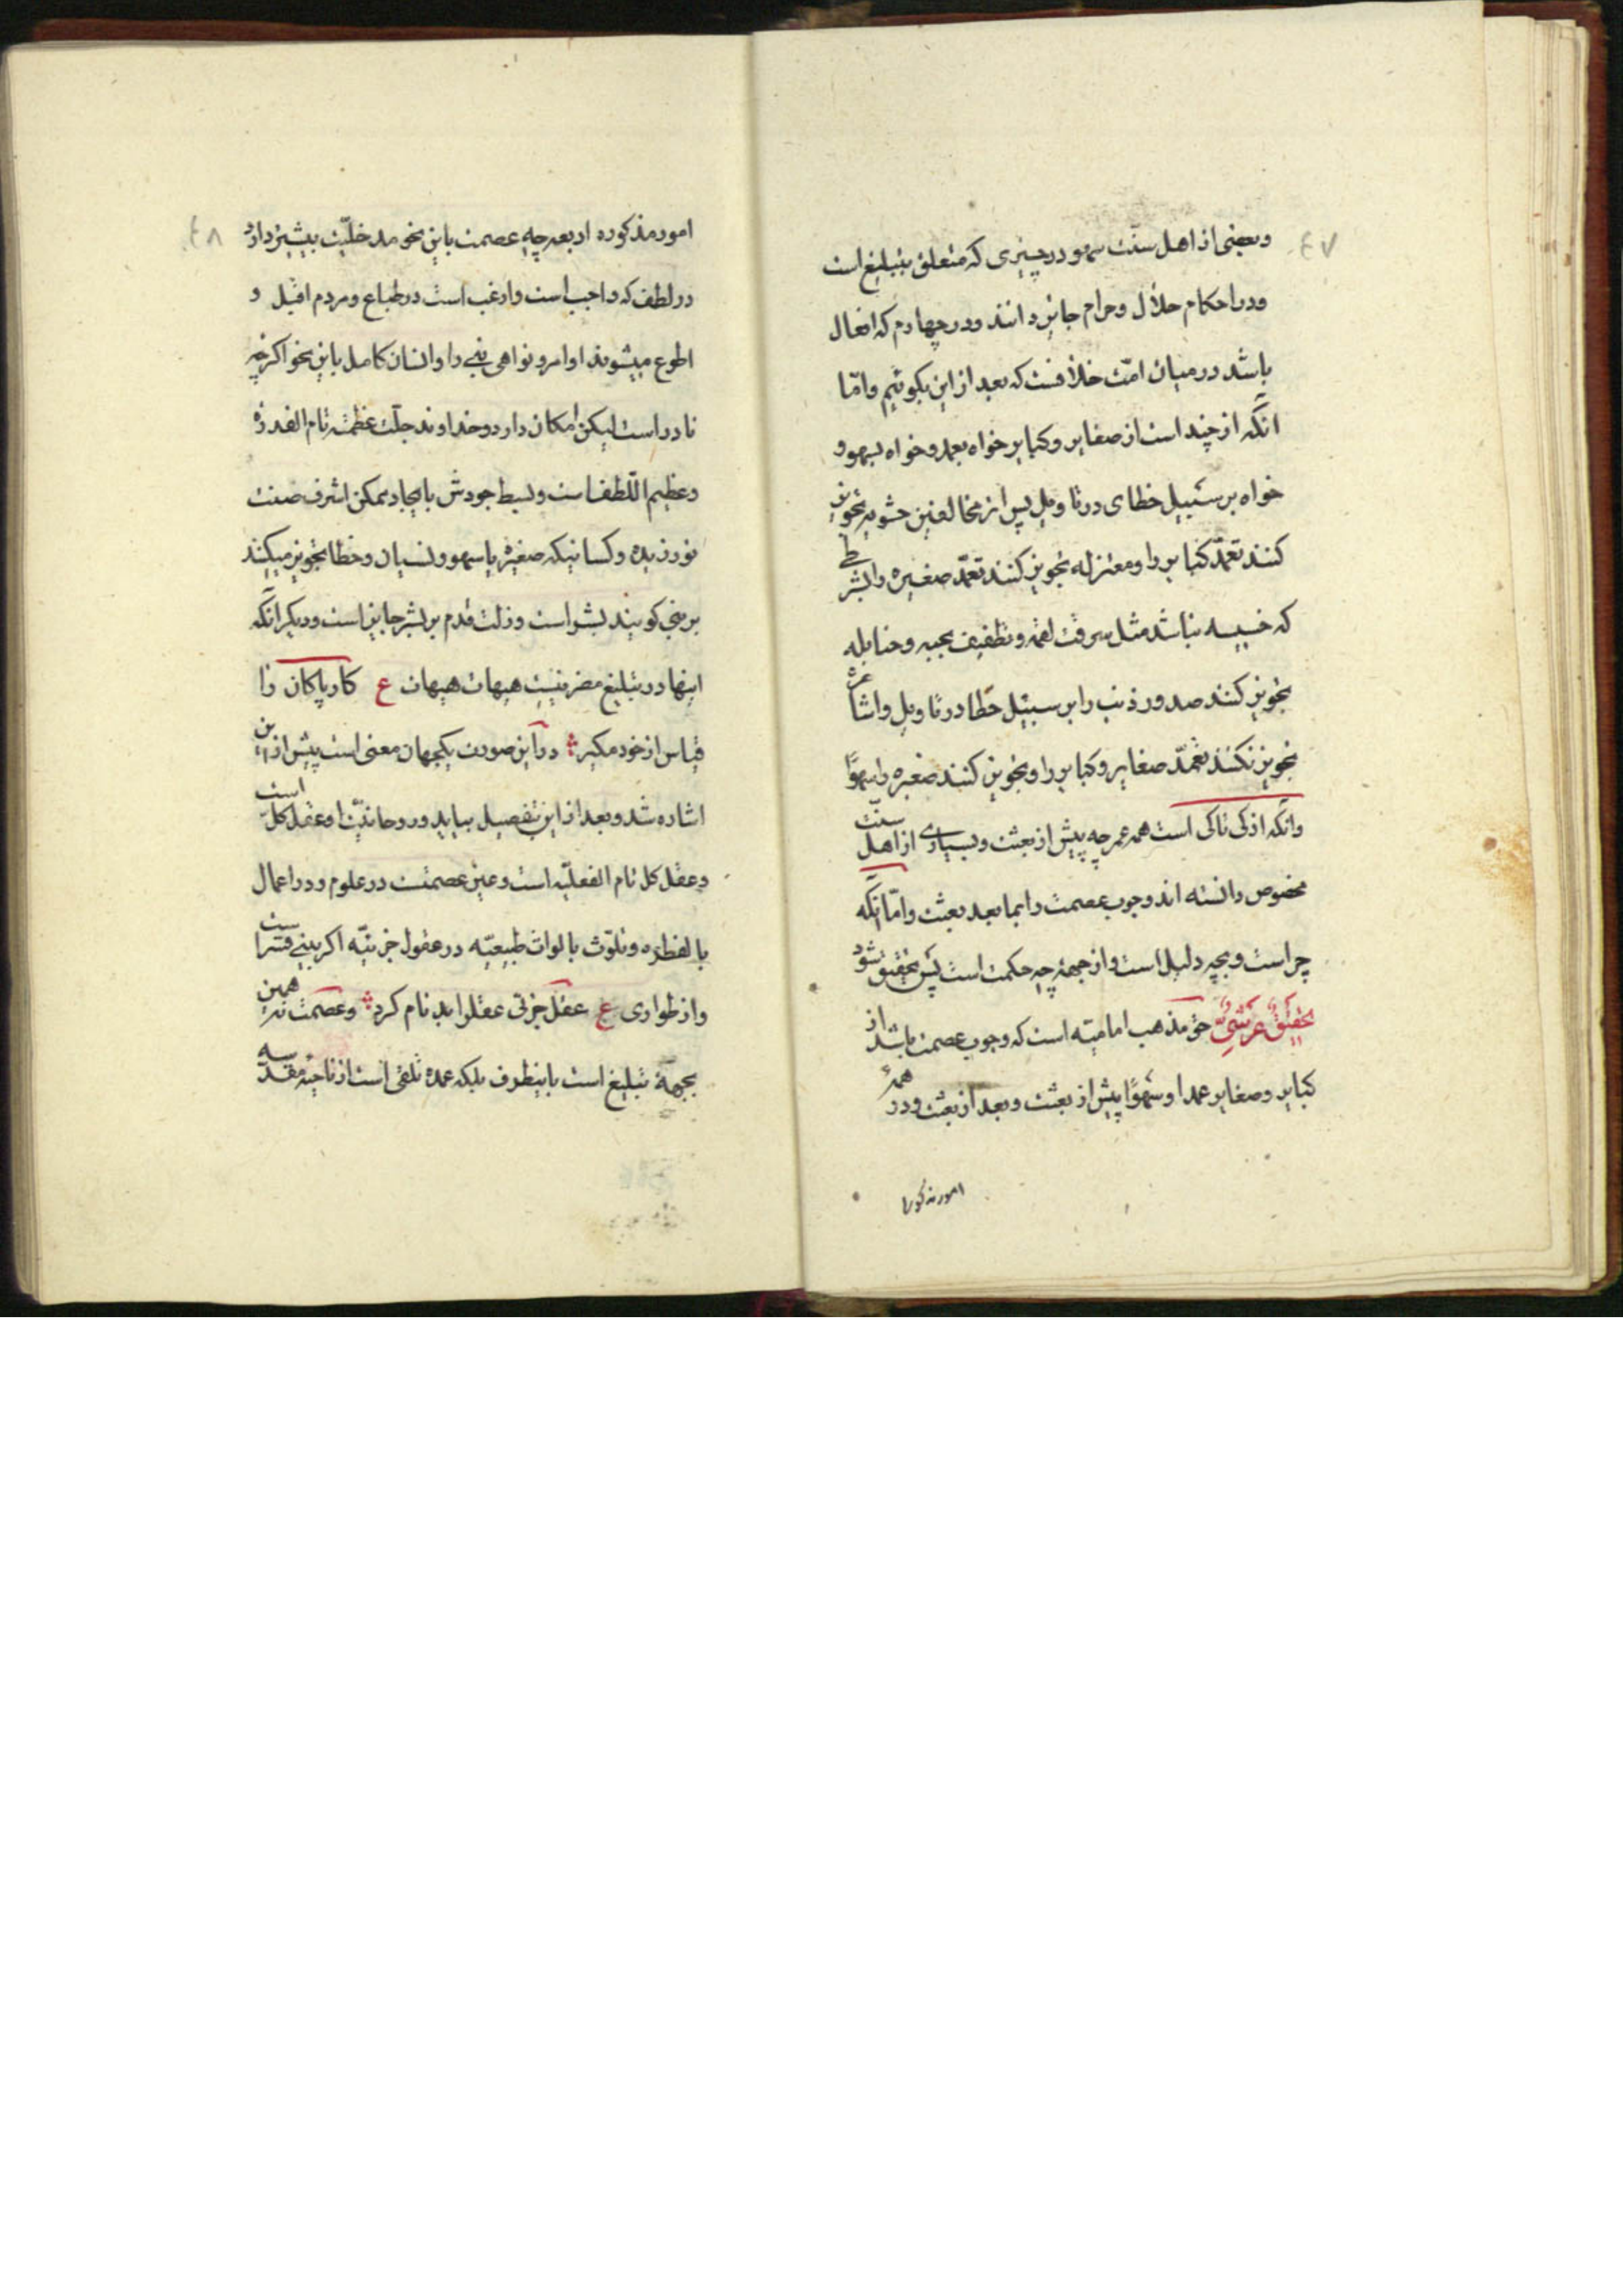 ٤٧
وبعضی از اهل سنّت سهو در چیزی که متعلق بتبلیغ است
ودر احکام حلال وحرام جایز دانند ودر چهارم که افعال
باشد در میان امّت خلافست که بعد از این بکوئیم وامّا
آنکه از چند است از صغایر وکبایر خواه بعمد وخواه بسهو و
خواه بر سبیل خطای در تاویل پس از مخالفین حشویه تجویز
کنند تعمّد کبایر را ومعتزله تجویز کنند تعمّد صغیره را بشرط
که خسیسه نباشد مثل سرقت لقمه وتطفیف بحبه وحنابله
تجویز کنند صدور ذنب را بر سبیل خطا در تاویل واشاعره
تجویز نکنند تعمّد صغایر وکبایر را وتجویز کنند صغیره را سهوًا
وآنکه از کی تاکی است همه عمر چه پیش از بعثت وبسیاری از اهل سنّت
مخصوص دانسته اند وجوب عصمت را بما بعد بعثت وامّا آنکه
چراست وبچه دلیل است واز جهة چه حکمت است پس تحقیق شود
تحقیقٌ عرشیٌّ حق مذهب امامیّه است که وجوب عصمت باشد از
کبایر وصغایر عمدا وسهوًا پیش از بعثت وبعد از بعثت ودر همهٔ
امور مذکوره
٤٨
امور مذکوره اربعه چه عصمت باین نحو مدخلیّت بیشتر دارد
در لطف که واجب است وارغب است در طباع ومردم اقبل و
اطوع میشوند اوامر ونواهی نبی را وانسان کامل باین نحو اکرچه
نادر است لیکن امکان دارد وخداوند جلّت عظمته تام القدرة
وعظیم اللّطف است وبسیط جودش بایجاد ممکن اشرف ضنت
نورزیده وکسانیکه صغیره یا سهو ونسیان وخطا تجویز میکنند
بر نبی کویند بشر است وزلت قدم بر بشر جایز است ودیکر آنکه
اینها در تبلیغ مضر نیست هیهات هیهات ع کار پاکان را
قیاس از خود مکیر در این صورت یکجهان معنی است پیش از این
اشاره شد وبعد از این تفصیل بیاید وروحانیّت او عقل کلّ است
وعقل کل تام الفعلیّه است وعین عصمتست در علوم ودر اعمال
بالفطره وتلوّث بالواث طبیعیّه در عقول جزئیّه اکر بینی قسر است
واز طواری ع عقل جزئی عقل را بد نام کرد وعصمت نه همین
بجهة تبلیغ است باینطرف بلکه عمده تلقی است از ناحیه مقدّسه